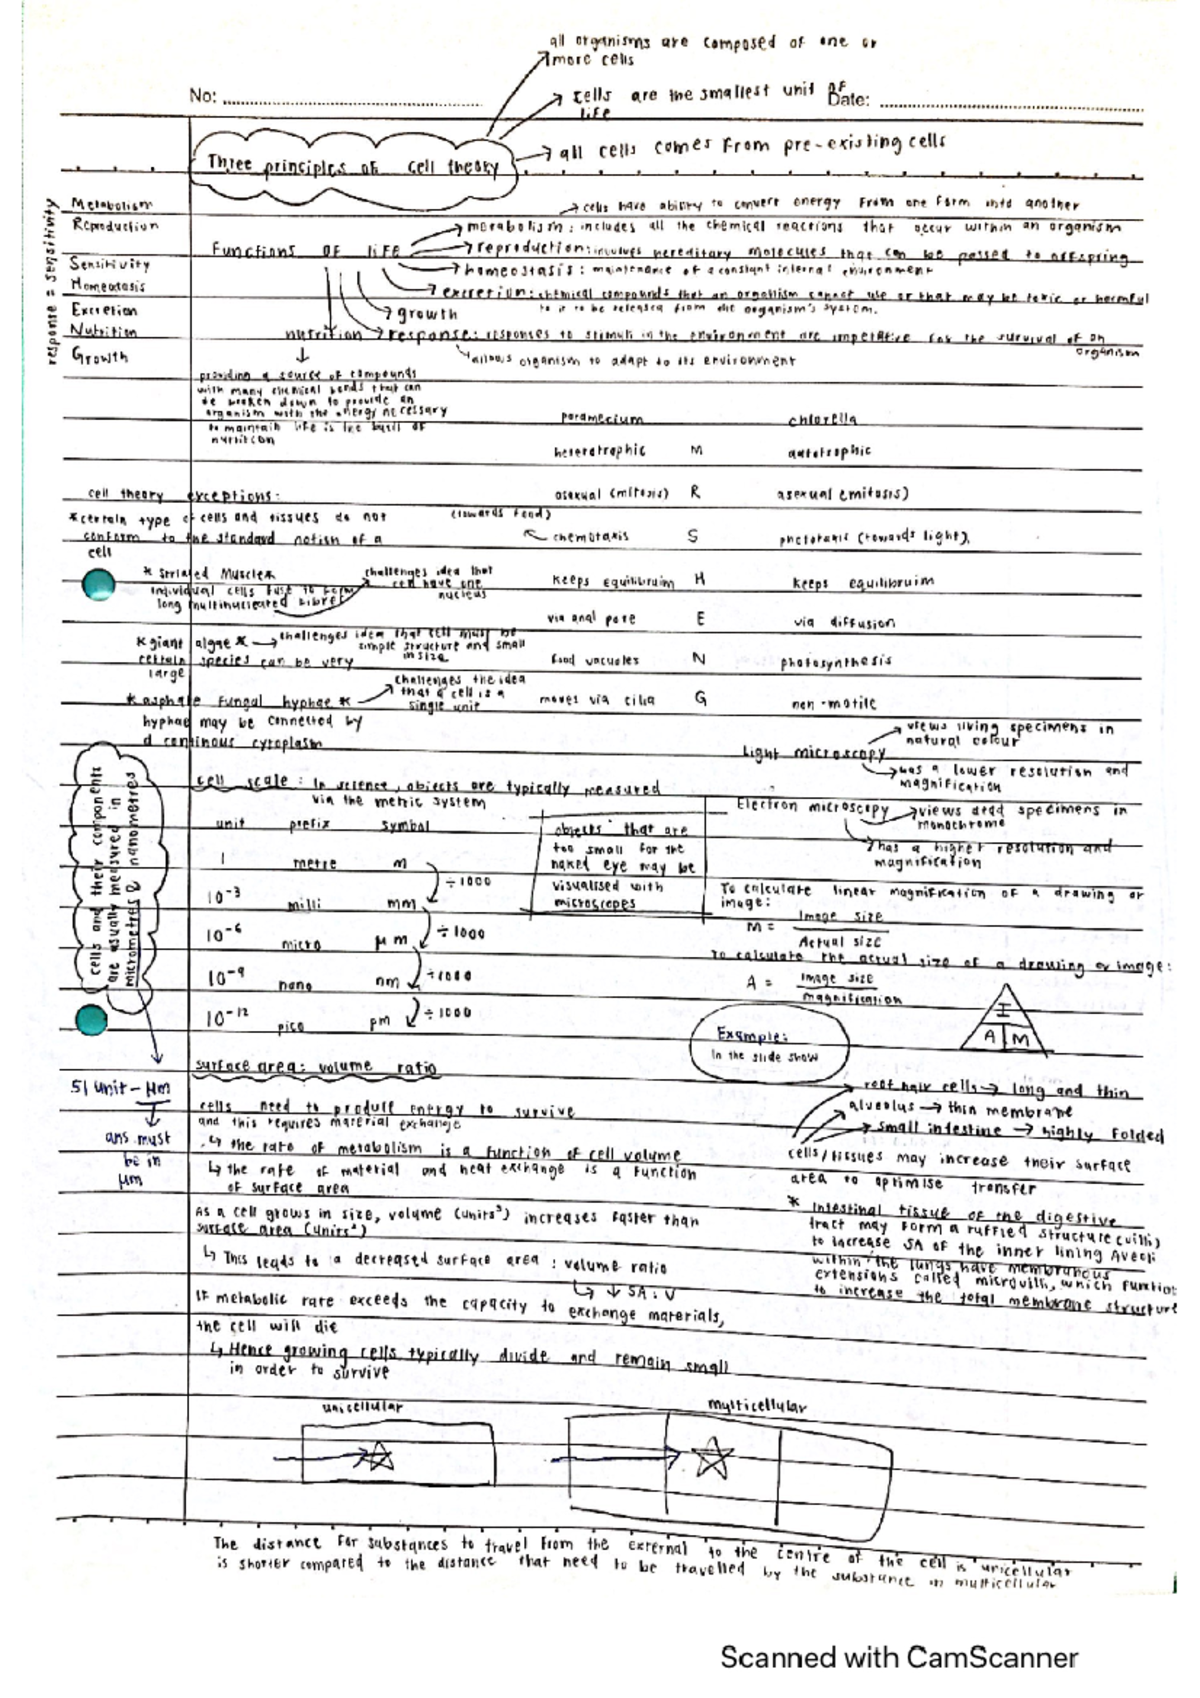 all organisms are composed of one or
more cells
No:
cells are the smallest unit of
life
Date:
Three principles of cell theory
all cells comes from pre-existing cells
response = sensitivity
Metabolism
Reproduction
Sensitivity
Homeostasis
Excretion
Nutrition
Growth
cells have ability to convert energy from one form into another
Functions of life
metabolism: includes all the chemical reactions that occur within an organism
reproduction: involves hereditary molecules that can be passed to offspring
homeostasis: maintenance of a constant internal environment
excretion: chemical compounds that an organism cannot use or that may be toxic or harmful
to it to be released from the organism's system.
growth
nutrition
response: responses to stimuli in the environment are imperative for the survival of an
organism
allows organism to adapt to its environment
providing a source of compounds
with many chemical bonds that can
be broken down to provide an
organism with the energy necessary
to maintain life is the basis of
nutrition
paramecium chlorella
heterotrophic M autotrophic
asexual (mitosis) R asexual (mitosis)
(towards food)
chemotaxis S phototaxis (towards light),
keeps equilibruim H keeps equilibruim
via anal pore E via diffusion
food vacuoles N photosynthesis
moves via cilia G non-motile
cell theory exceptions:
*certain type of cells and tissues do not
conform to the standard notion of a
cell
* Striated Muscle*
individual cells fuse to form
long multinucleated fibres
challenges idea that
cell have one
nucleus
*giant algae*
certain species can be very
large
challenges idea that cell must be
simple structure and small
in size
*asphate fungal hyphae*
hyphae may be connected by
d continous cytoplasm
challenges the idea
that a cell is a
single unit
Light microscopy
views living specimens in
natural colour
has a lower resolution and
magnification
Electron microscopy
views dead specimens in
monochrome
has a higher resolution and
magnification
cells and their components
are usually measured in
micrometres & nanometres
cell scale: In science, objects are typically measured
via the metric system
unit prefix symbol
1 metre m
÷1000
10⁻³ milli mm
÷1000
10⁻⁶ micro μm
÷1000
10⁻⁹ nano nm
÷1000
10⁻¹² pico pm
objects that are
too small for the
naked eye may be
visualised with
microscopes
To calculate linear magnification of a drawing or
image:
M = Image size
Actual size
To calculate the actual size of a drawing or image:
A = Image size
magnification
I
A M
Example:
In the slide show
SI unit - μm
ans must
be in
μm
surface area: volume ratio
cells need to produce energy to survive
and this requires material exchange
↳ the rate of metabolism is a function of cell volume
↳ the rate of material and heat exchange is a function
of surface area
As a cell grows in size, volume (units³) increases faster than
surface area (units²)
↳ This leads to a decreased surface area : volume ratio
↳ ↓ SA:V
If metabolic rate exceeds the capacity to exchange materials,
the cell will die
↳ Hence growing cells typically divide and remain small
in order to survive
root hair cells → long and thin
alveolus → thin membrane
small intestine → highly folded
cells/tissues may increase their surface
area to optimise transfer
* Intestinal tissue of the digestive
tract may form a ruffled structure (villi)
to increase SA of the inner lining Aveoli
within the lungs have membranous
extensions called microvilli, which function
to increase the total membrane structure
unicellular
multicellular
The distance for substances to travel from the external to the centre of the cell is unicellular
is shorter compared to the distance that need to be travelled by the substance in multicellular
Scanned with CamScanner